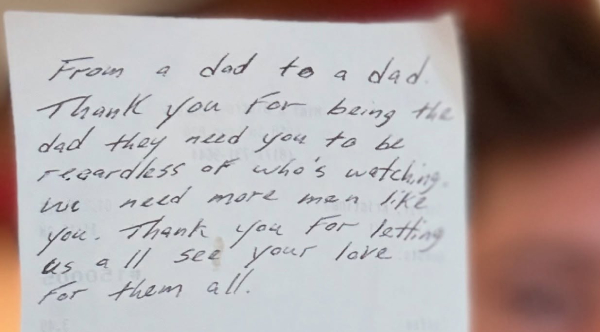 From a dad to a dad.
Thank you for being the
dad they need you to be
regardless of who's watching.
we need more men like
you. Thank you for letting
us all see your love
for them all.